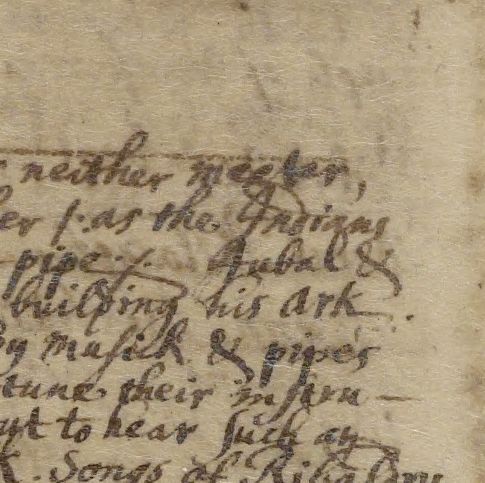 neither meeter,
er /: as the Indians
pipe :/. Jubal &
building his Ark.
by musick & pipes
tune their instru—
to hear such an
Songs of Ribaldry